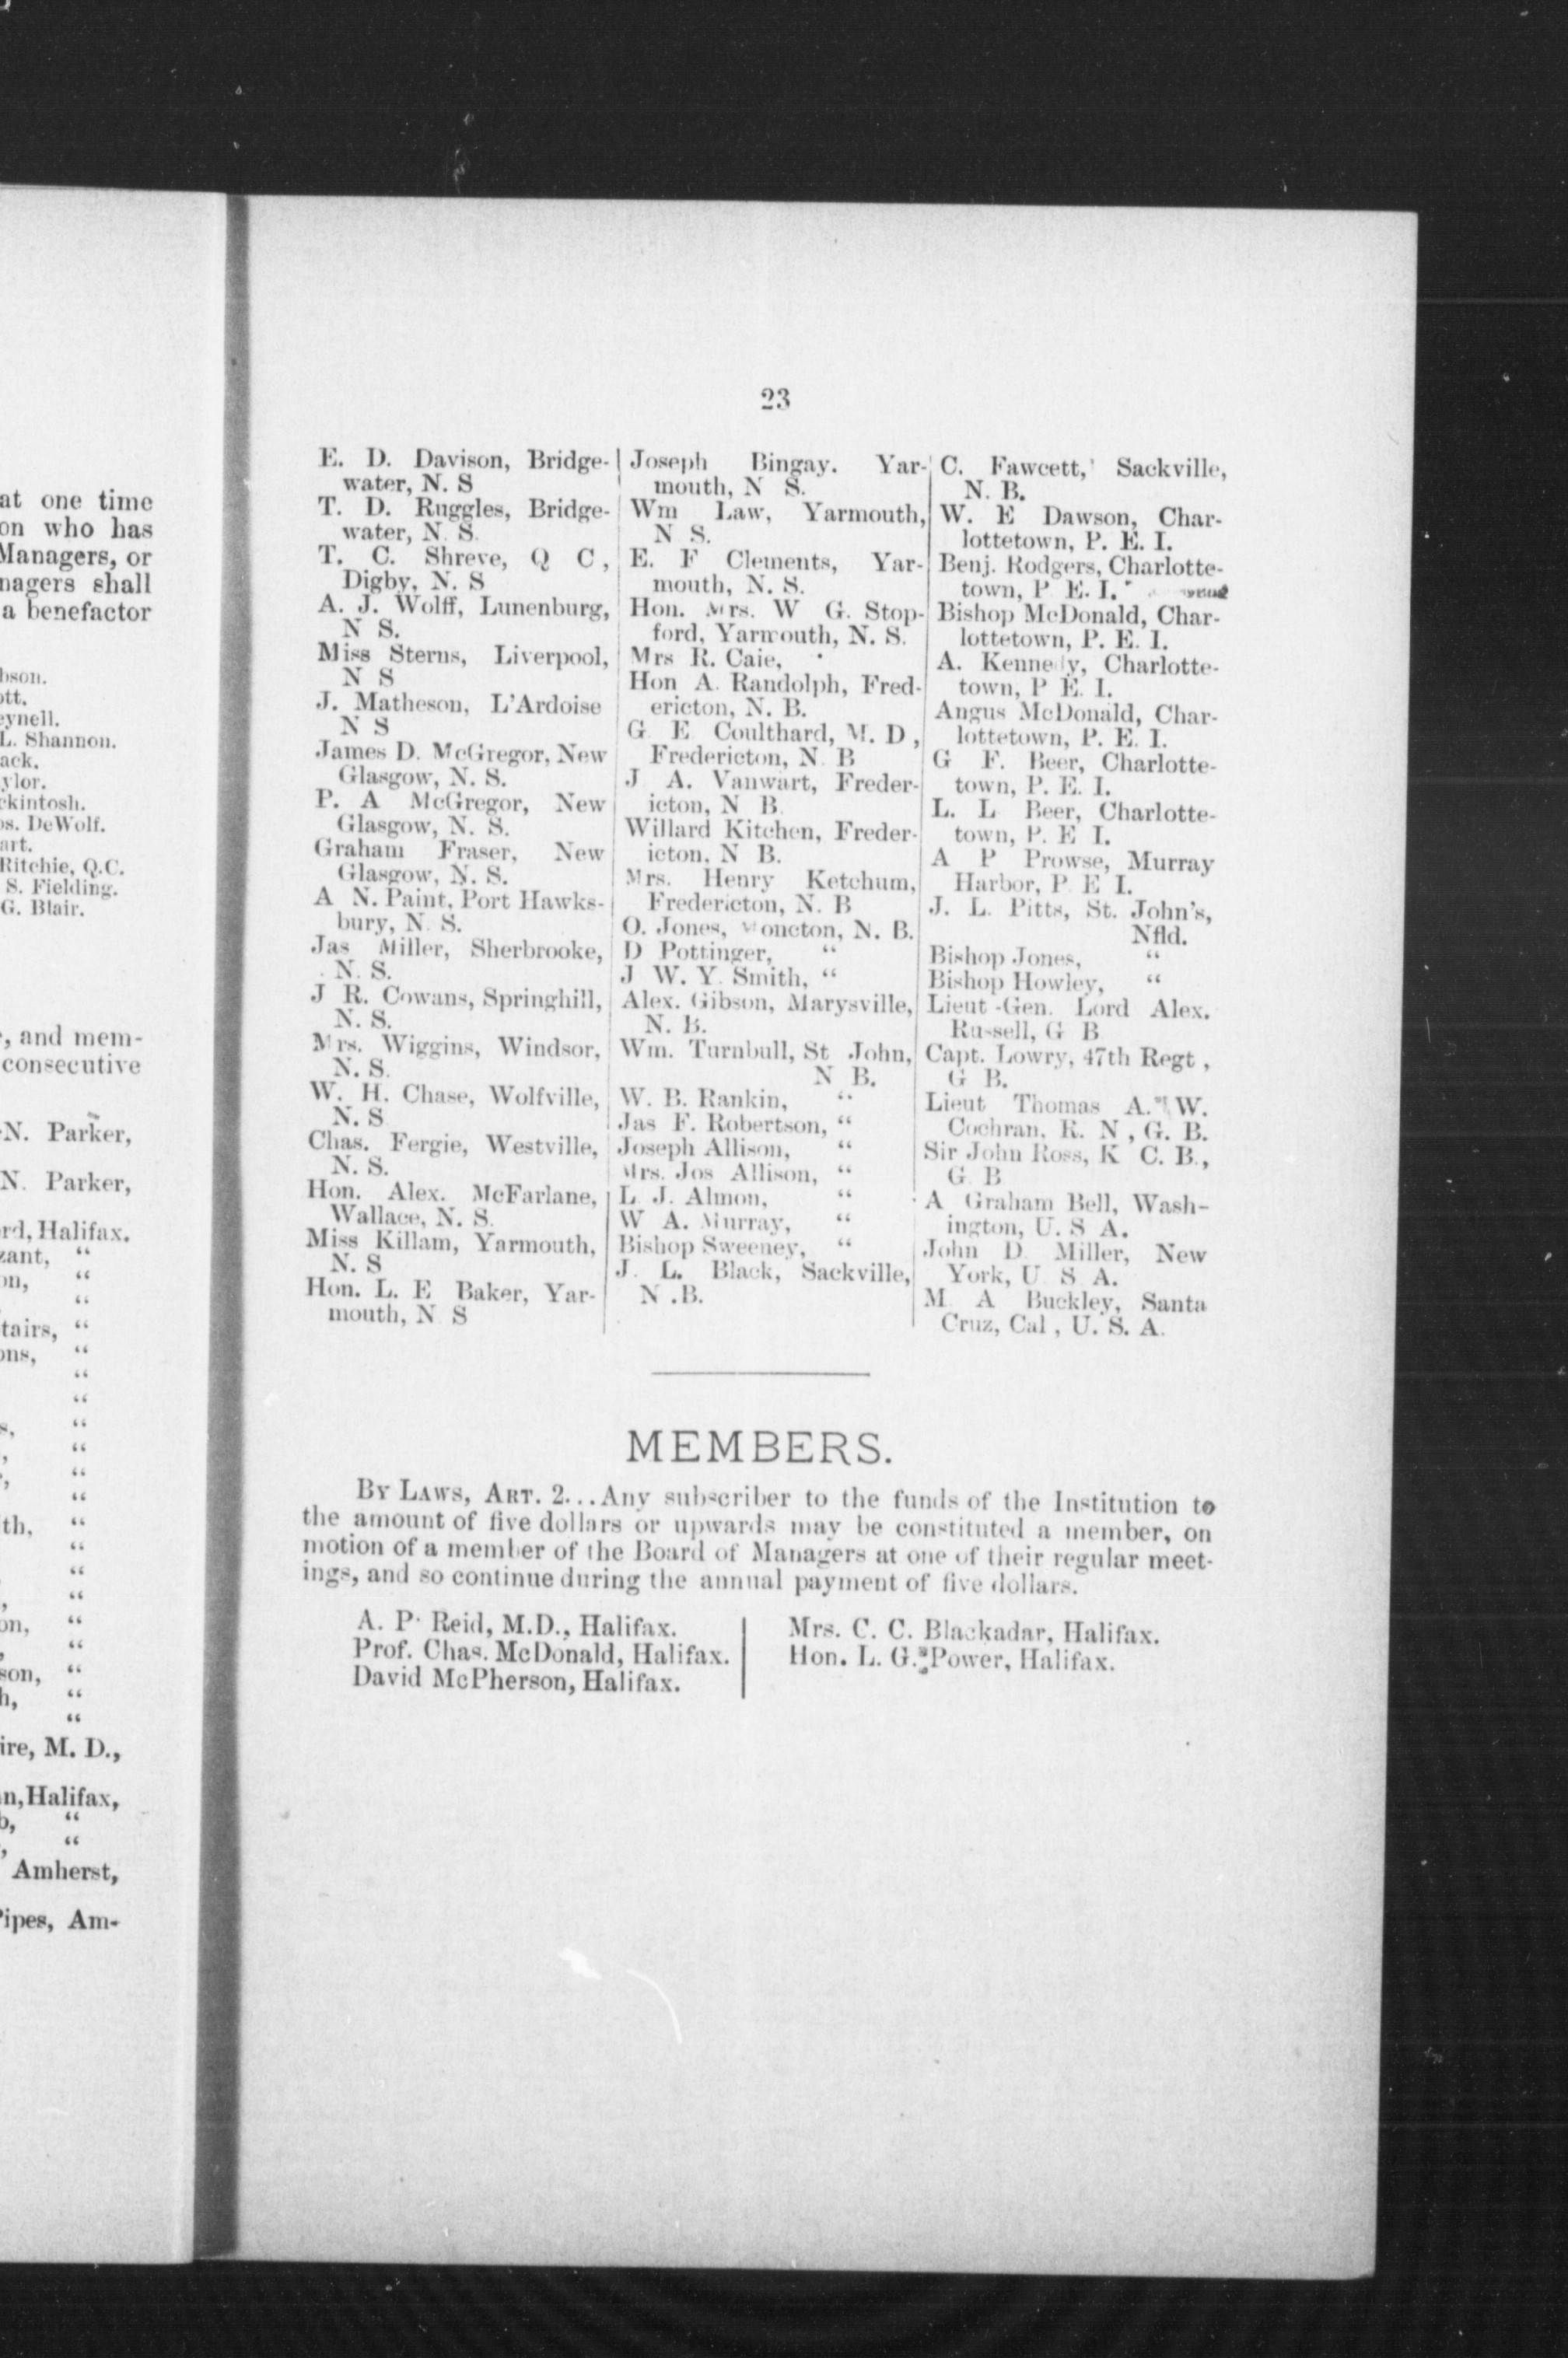 at one time
on who has
Managers, or
nagers shall
a benefactor
bson.
ott.
eynell.
L. Shannon.
ack.
ylor.
ckintosh.
os. DeWolf.
art.
Ritchie, Q.C.
S. Fielding.
G. Blair.
, and mem-
consecutive
N. Parker,
N. Parker,
rd, Halifax.
zant, “
on, “
“
tairs, “
ons, “
“
“
s, “
, “
, “
“
th, “
“
“
, “
on, “
, “
son, “
h, “
“
ire, M. D.,
n, Halifax,
o, “
, “
Amherst,
Pipes, Am-
23
E. D. Davison, Bridge-
water, N. S
T. D. Ruggles, Bridge-
water, N. S.
T. C. Shreve, Q C,
Digby, N. S
A. J. Wolff, Lunenburg,
N S.
Miss Sterns, Liverpool,
N S
J. Matheson, L'Ardoise
N S
James D. McGregor, New
Glasgow, N. S.
P. A McGregor, New
Glasgow, N. S.
Graham Fraser, New
Glasgow, N. S.
A N. Paint, Port Hawks-
bury, N. S.
Jas Miller, Sherbrooke,
N. S.
J R. Cowans, Springhill,
N. S.
Mrs. Wiggins, Windsor,
N. S.
W. H. Chase, Wolfville,
N. S
Chas. Fergie, Westville,
N. S.
Hon. Alex. McFarlane,
Wallace, N. S.
Miss Killam, Yarmouth,
N. S
Hon. L. E Baker, Yar-
mouth, N S
Joseph Bingay. Yar-
mouth, N S.
Wm Law, Yarmouth,
N S.
E. F Clements, Yar-
mouth, N. S.
Hon. Mrs. W G. Stop-
ford, Yarmouth, N. S.
Mrs R. Caie,
Hon A. Randolph, Fred-
ericton, N. B.
G E Coulthard, M. D,
Fredericton, N. B
J A. Vanwart, Freder-
icton, N B.
Willard Kitchen, Freder-
icton, N B.
Mrs. Henry Ketchum,
Fredericton, N. B
O. Jones, Moncton, N. B.
D Pottinger, “
J W. Y. Smith, “
Alex. Gibson, Marysville,
N. B.
Wm. Turnbull, St John,
N B.
W. B. Rankin, “
Jas F. Robertson, “
Joseph Allison, “
Mrs. Jos Allison, “
L J. Almon, “
W A. Murray, “
Bishop Sweeney, “
J. L. Black, Sackville,
N .B.
C. Fawcett, Sackville,
N. B.
W. E Dawson, Char-
lottetown, P. E. I.
Benj. Rodgers, Charlotte-
town, P E. I.
Bishop McDonald, Char-
lottetown, P. E. I.
A. Kennedy, Charlotte-
town, P E. I.
Angus McDonald, Char-
lottetown, P. E. I.
G F. Beer, Charlotte-
town, P. E. I.
L. L Beer, Charlotte-
town, P. E I.
A P Prowse, Murray
Harbor, P. E I.
J. L. Pitts, St. John's,
Nfld.
Bishop Jones, “
Bishop Howley, “
Lieut-Gen. Lord Alex.
Russell, G B
Capt. Lowry, 47th Regt,
G B.
Lieut Thomas A. W.
Cochran, R. N, G. B.
Sir John Ross, K C. B.,
G B
A Graham Bell, Wash-
ington, U. S A.
John D Miller, New
York, U S A.
M A Buckley, Santa
Cruz, Cal, U. S. A.
MEMBERS.
BY LAWS, ART. 2...Any subscriber to the funds of the Institution to
the amount of five dollars or upwards may be constituted a member, on
motion of a member of the Board of Managers at one of their regular meet-
ings, and so continue during the annual payment of five dollars.
A. P. Reid, M.D., Halifax.
Prof. Chas. McDonald, Halifax.
David McPherson, Halifax.
Mrs. C. C. Blackadar, Halifax.
Hon. L. G. Power, Halifax.